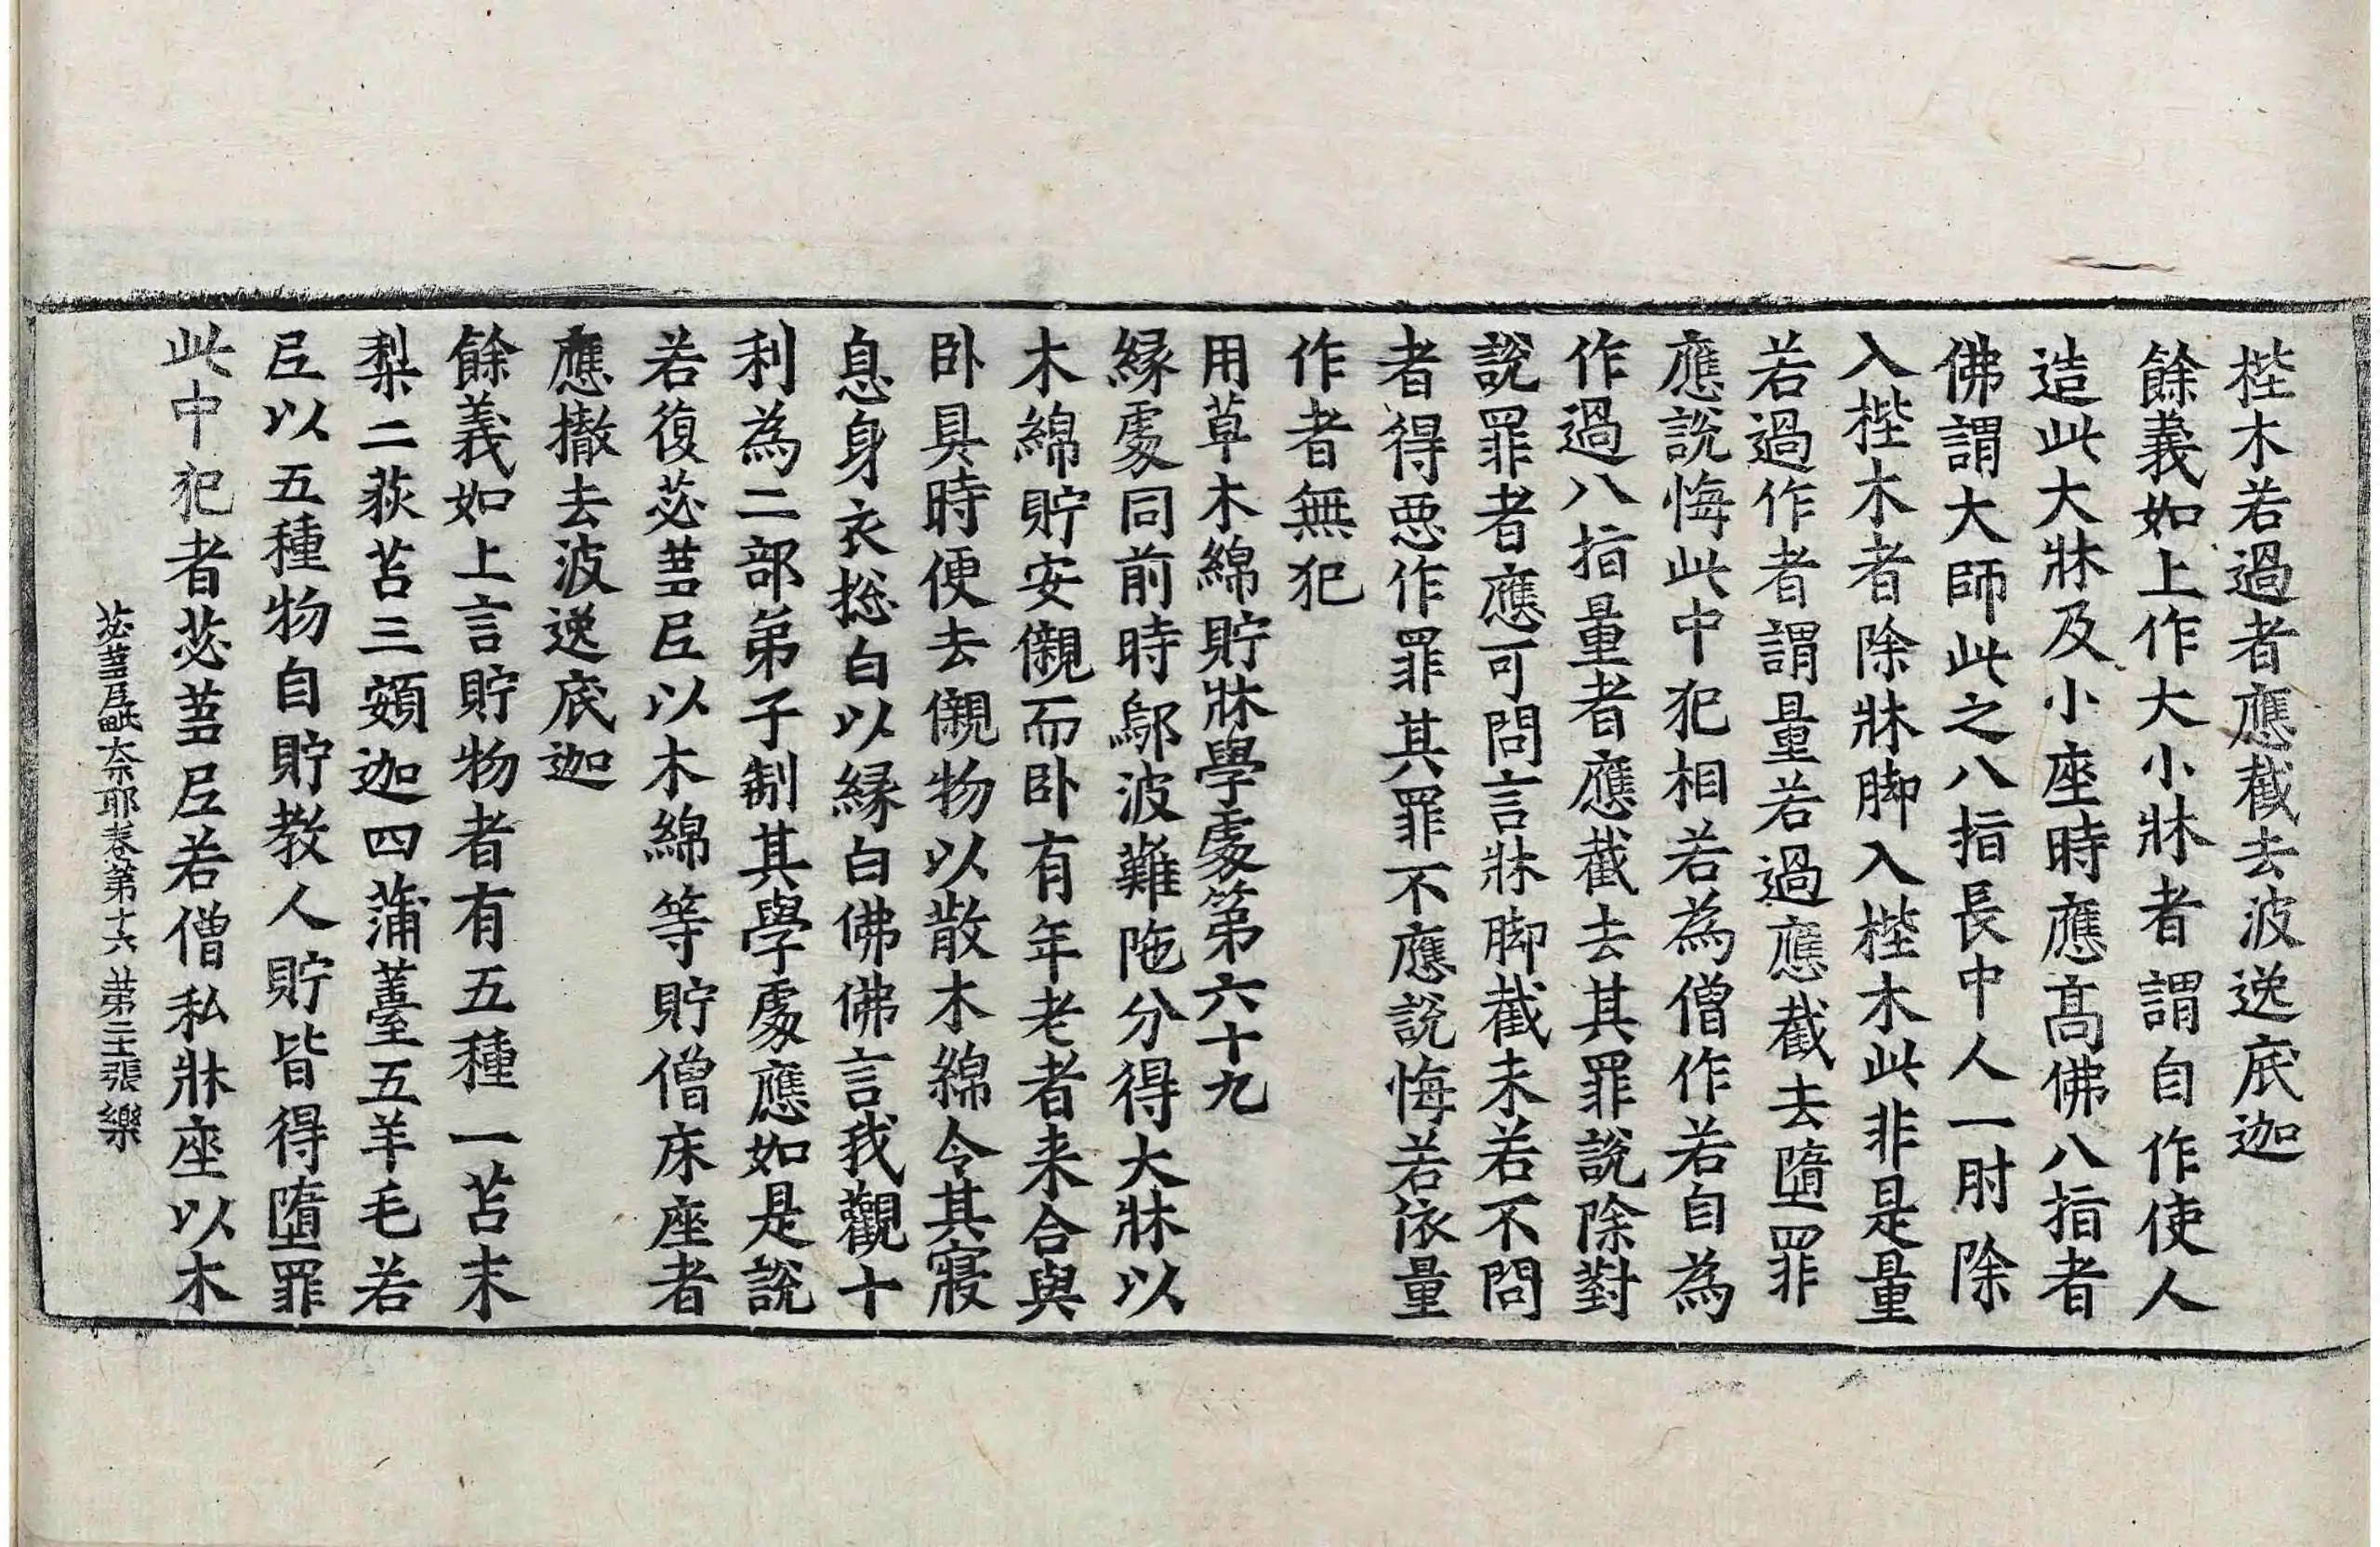 桯木若過者應截去波逸底迦
餘義如上作大小牀者謂自作使人
造此大牀及小座時應髙佛八指者
佛謂大師此之八指長中人一肘除
入桯木者除牀脚入桯木此非是量
若過作者謂量若過應截去墮罪
應說悔此中犯相若為僧作若自為
作過八指量者應截去其罪說除對
說罪者應可問言牀脚截未若不問
者得惡作罪其罪不應說悔若依量
作者無犯
用草木綿貯牀學處第六十九
縁處同前時鄔波難陁分得大牀以
木綿貯安儭而卧有年老者来合與
卧具時便去儭物以散木綿令其寢
息身衣揔白以縁白佛佛言我觀十
利為二部弟子制其學處應如是說
若復苾蒭𡰱以木綿等貯僧床座者
應撤去波逸底迦
餘義如上言貯物者有五種一苫末
梨二荻苫三頞迦四蒲臺五羊毛若
𡰱以五種物自貯教人貯皆得墮罪
此中犯者苾蒭𡰱若僧私牀座以木
苾蒭𡰱毗奈耶卷第十六 第二十張 樂